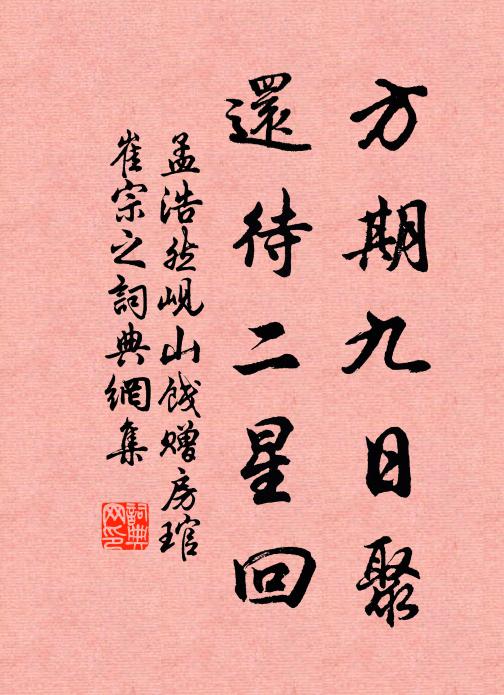 方期九日聚
還待二星回
孟浩然峴山餞贈房琯
崔宗之詞典網集
詞典
网印